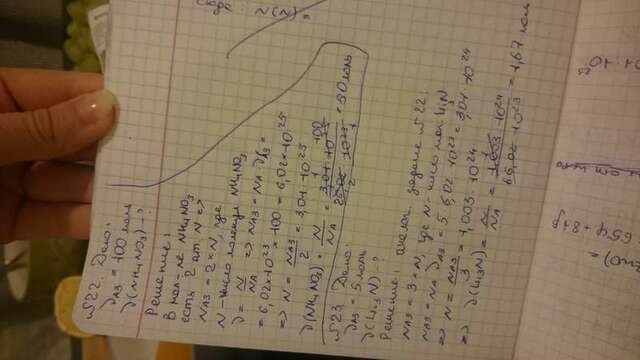 №22. Дано:
νаз = 100 моль
ν(NH4NO3) - ?
Решение:
В мол-ле NH4NO3
есть 2 ат. N =>
Nаз = 2 × N, где
N - число молекул NH4NO3
ν = N/NA => Nаз = NA · νаз =
= 6,02 × 10^23 × 100 = 6,02 × 10^25
=> N = Nаз/2 = 3,01 · 10^25
ν(NH4NO3) = N/NA = 3,01 · 10^25 / 6,02 · 10^23 = 50 моль
№23. Дано:
νаз = 5 моль
ν(Li3N) - ?
Решение: аналог. задаче №22:
Nаз = 3 × N, где N - число мол. Li3N
Nаз = NA · νаз = 5 · 6,02 · 10^23 = 3,01 · 10^24
=> N = Nаз/3 = 1,003 · 10^24
=> ν(Li3N) = N/NA = 1,003 · 10^24 / 6,02 · 10^23 = 1,67 моль
N(N) =
65φ + 81φ